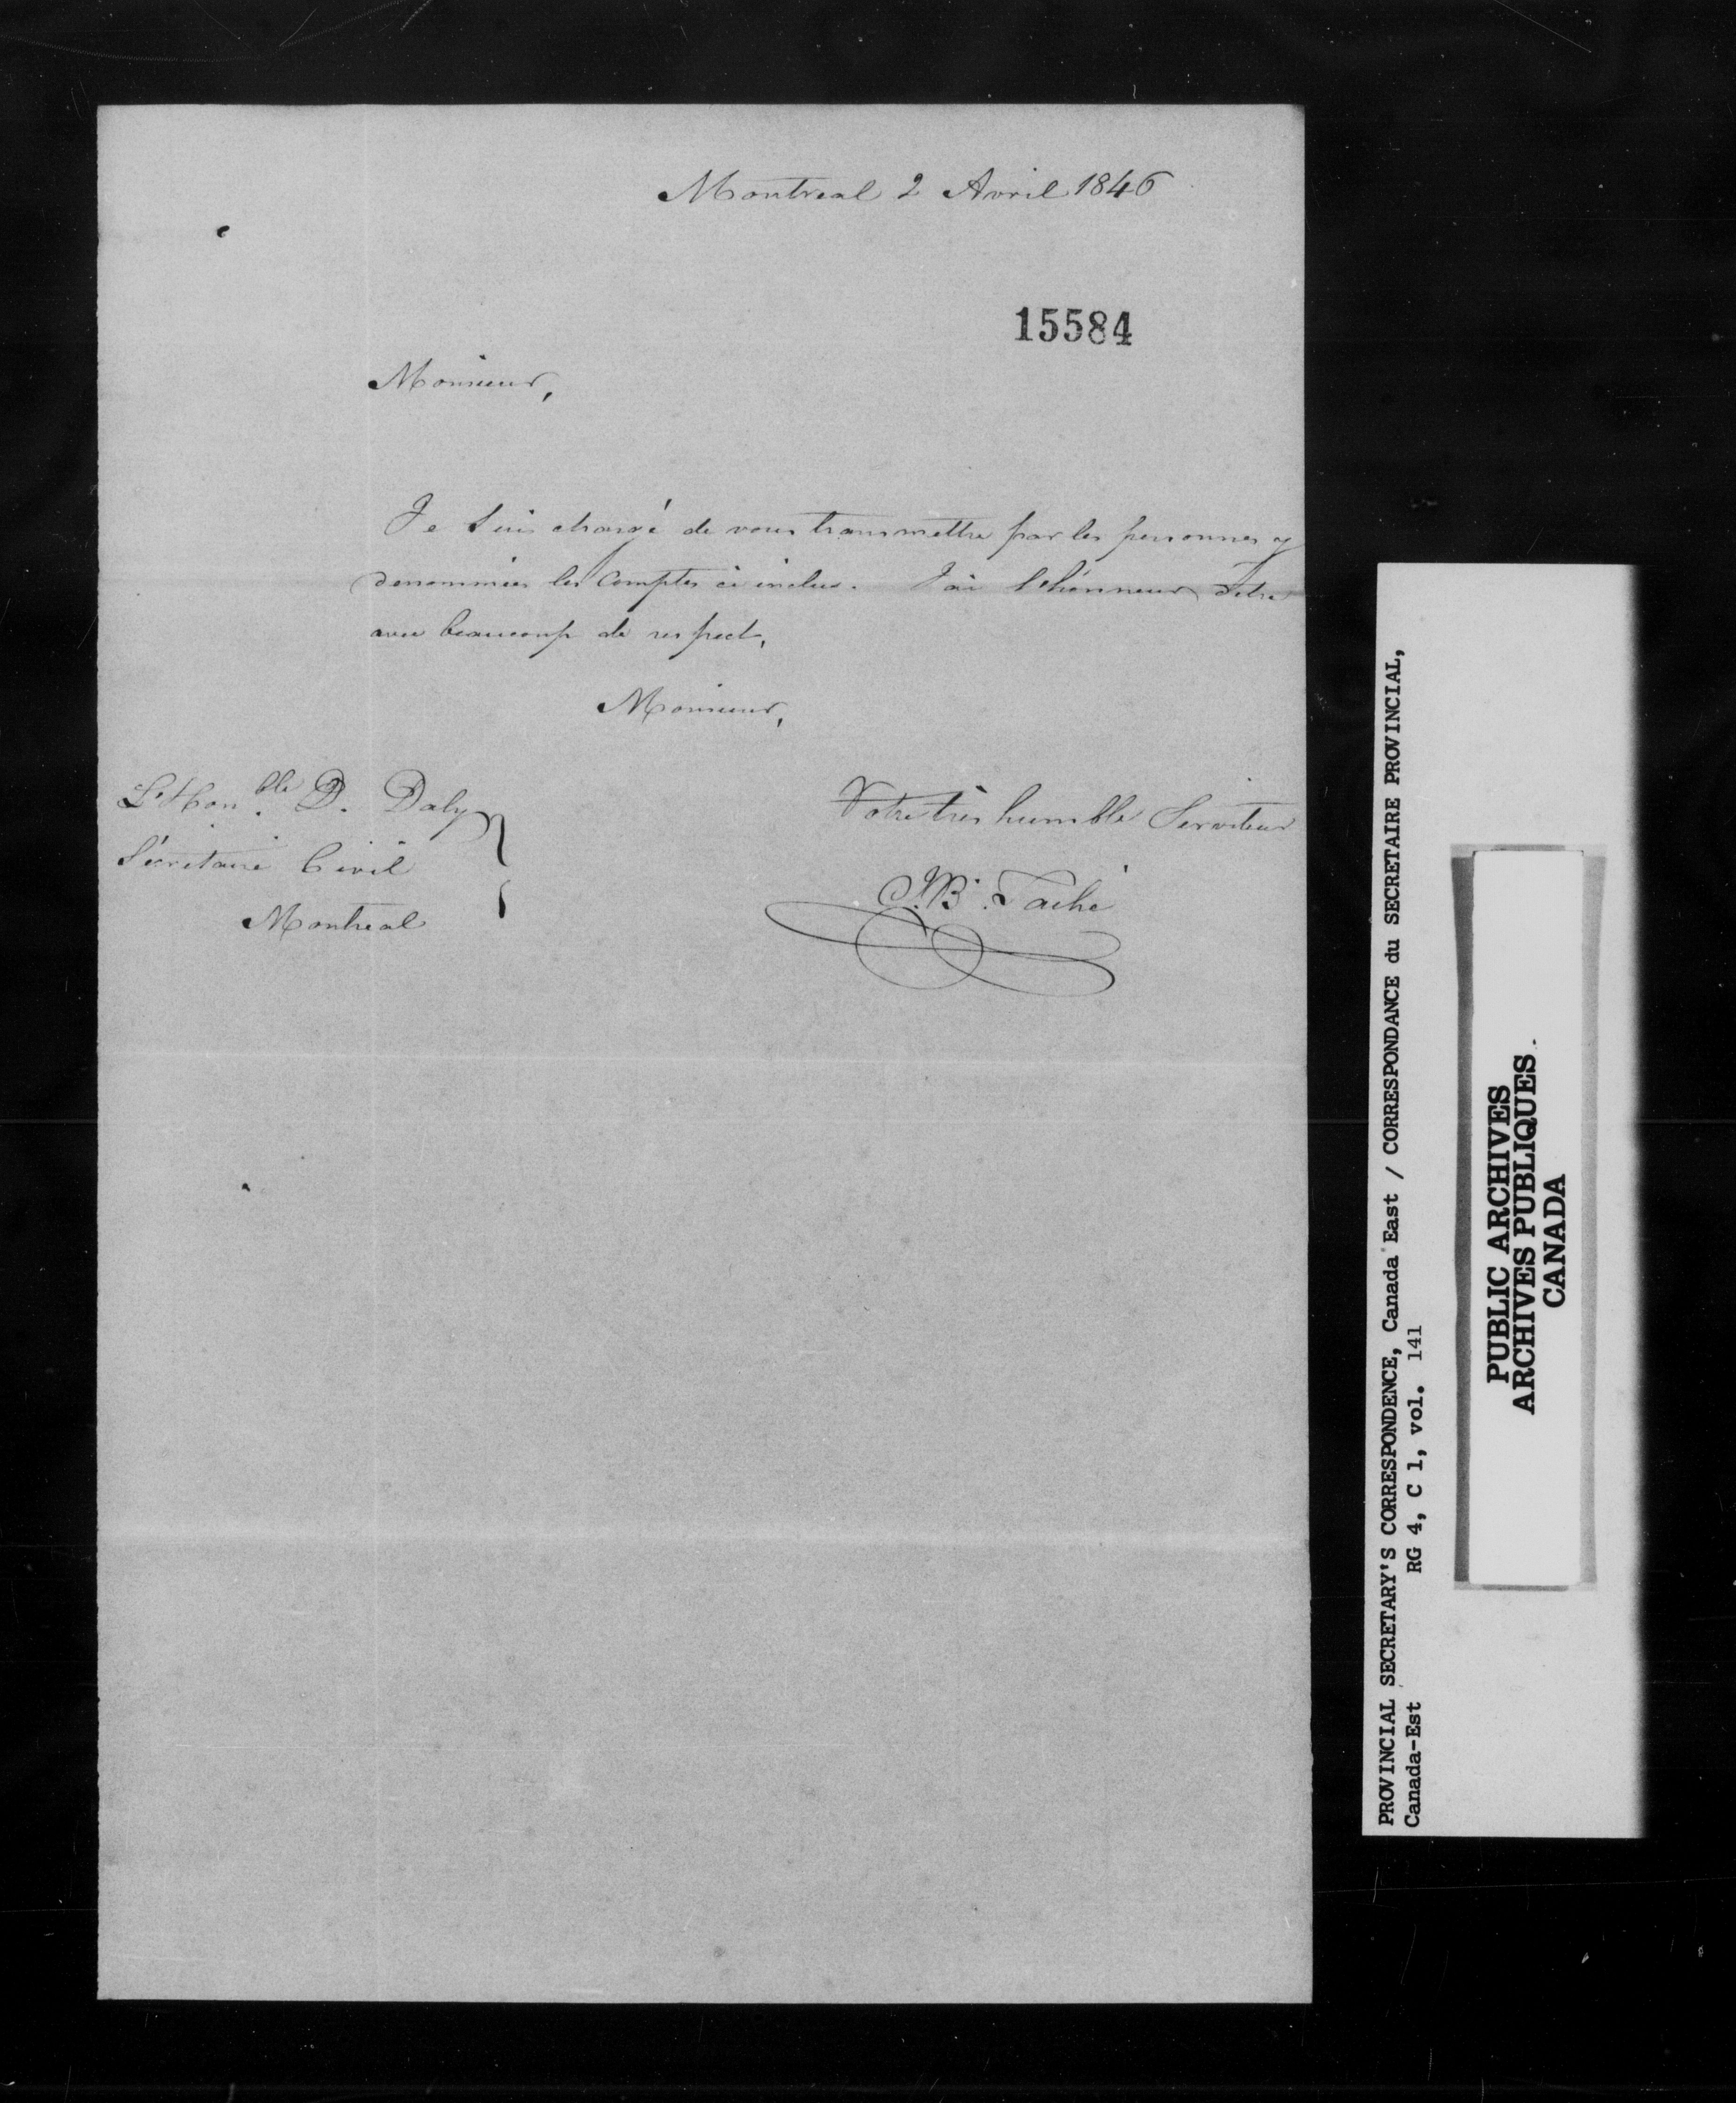 Montreal 2 Avril 1846
15584
Monsieur,
Je suis chargé de vous transmettre par les personnes y
denommées les Comptes ci inclus. J'ai l'honneur d'etre
avec beaucoup de respect,
Monsieur,
L'Hon.ble D. Daly
Sécrétaire Civil
Montreal
Votre très humble Serviteur
J. B. Taché
PROVINCIAL SECRETARY'S CORRESPONDENCE, Canada East / CORRESPONDANCE du SECRETAIRE PROVINCIAL,
Canada-Est RG 4, C 1, vol. 141
PUBLIC ARCHIVES
ARCHIVES PUBLIQUES
CANADA